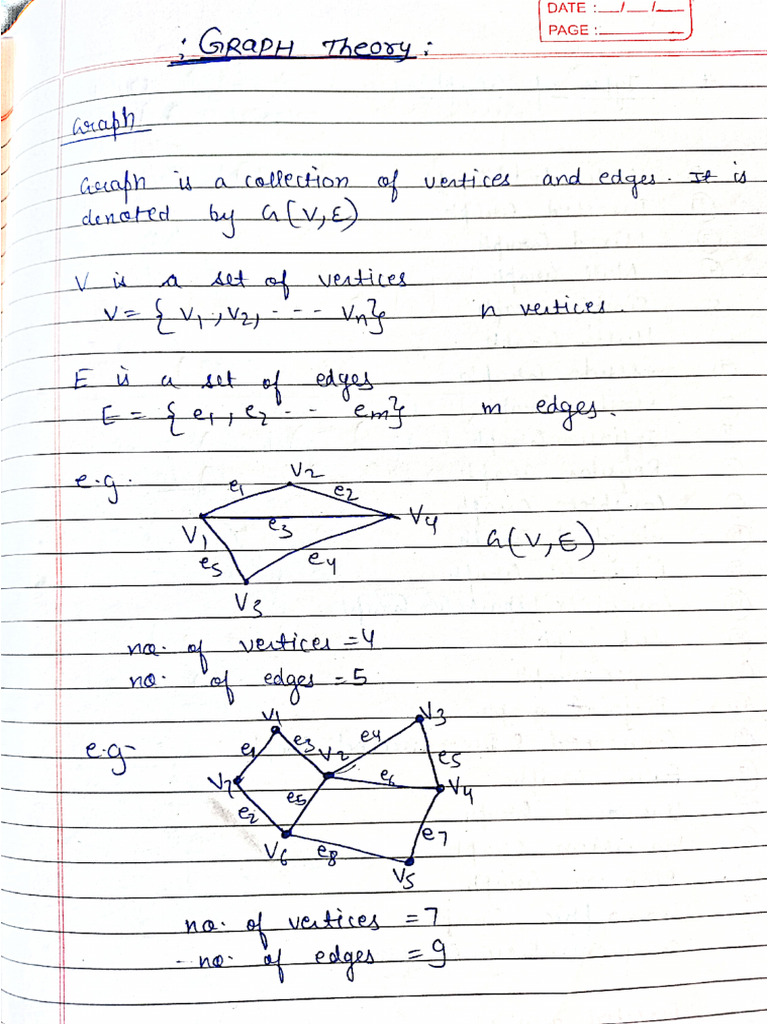 DATE : __/__/__
PAGE : ________
: GRAPH Theory :
Graph
Graph is a collection of vertices and edges. It is
denoted by G(V,E)
V is a set of vertices
V = { V1, V2, ---- Vn} n vertices.
E is a set of edges
E = { e1, e2 -- -- em} m edges.
e.g.
V2
e1 e2
V1 e3 V4
G(V,E)
e5 e4
V3
no. of vertices = 4
no. of edges = 5
e.g-
V1 V3
e1 e3 V2 e4 e5
V7 e5 e6 V4
e2 e7
V6 e8 V5
no. of vertices = 7
- no. of edges = 9